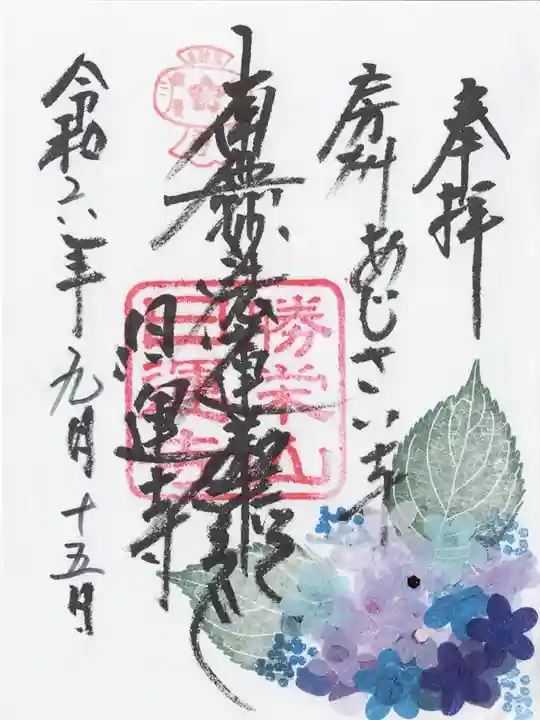 奉拝
房州 あじさい寺
南無妙法蓮華経
勝栄山
日運寺
日運寺
令和六年 九月 十五日